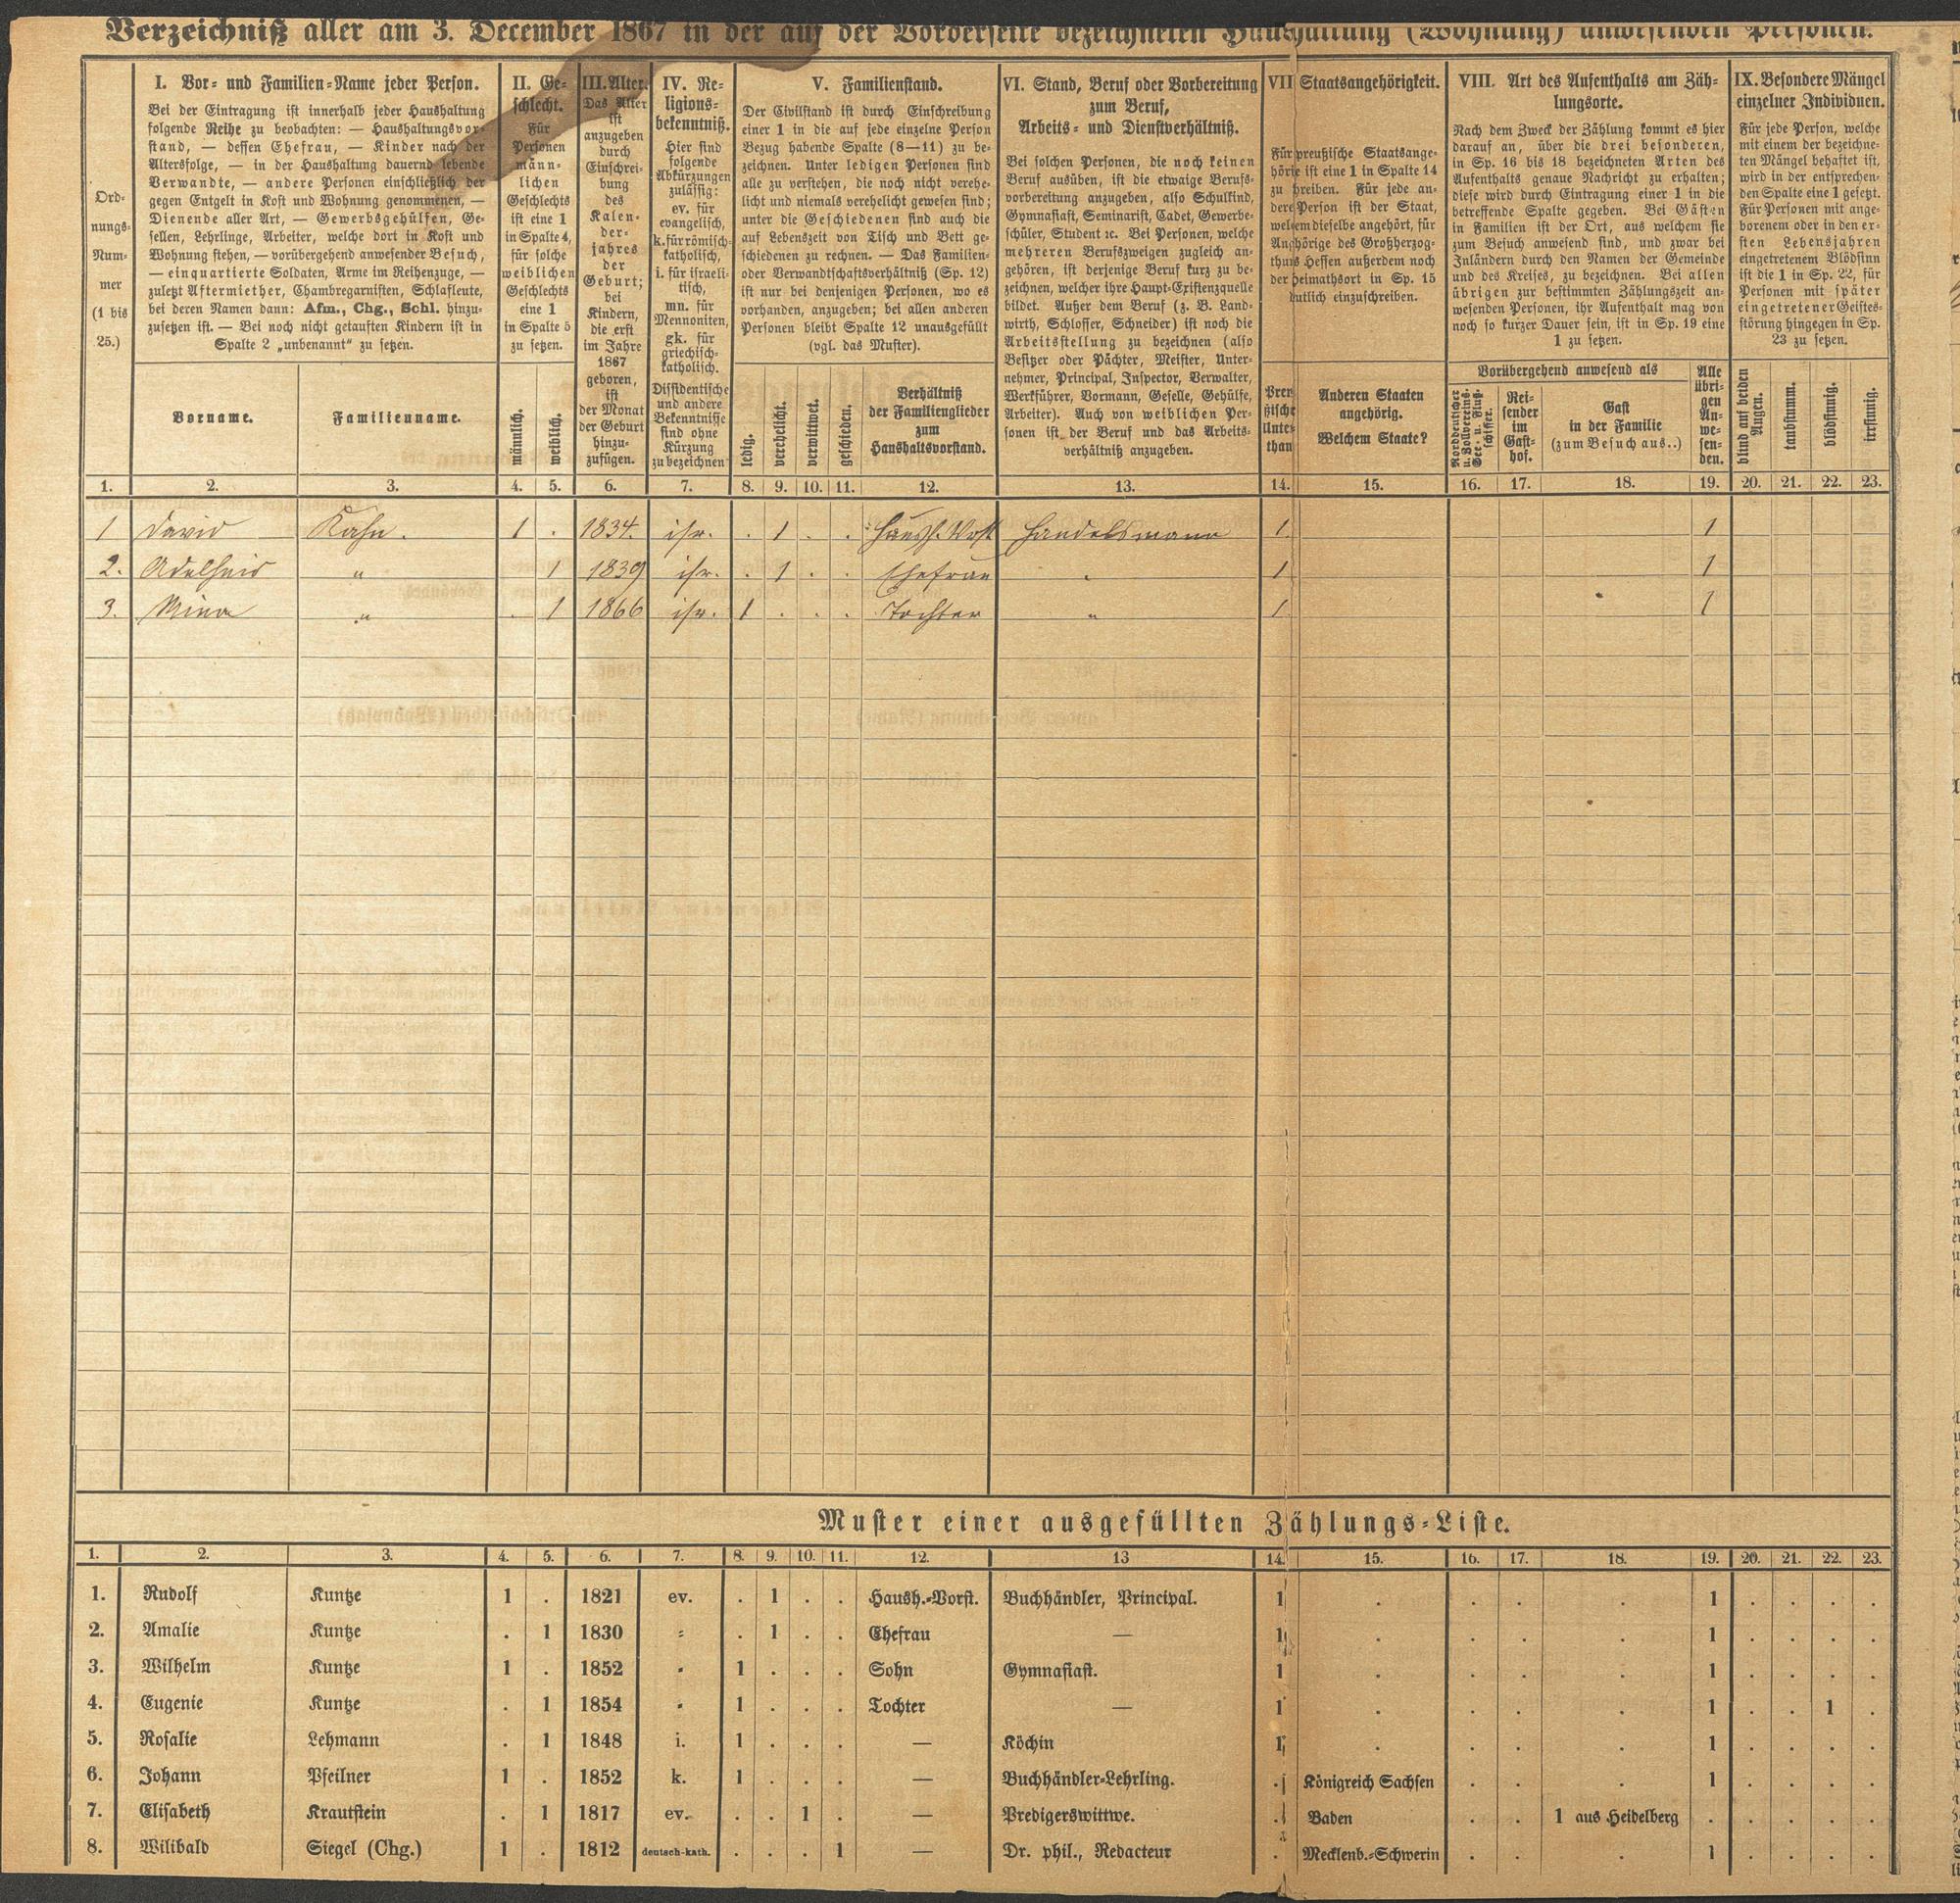 Verzeichniß aller am 3. December 1867 in der auf der Vorderseite bezeichneten Haushaltung (Wohnung) anwesenden Personen.
Ord-
nungs-
Num-
mer
(1 bis
25.)
I. Vor- und Familien-Name jeder Person.
Bei der Eintragung ist innerhalb jeder Haushaltung
folgende Reihe zu beobachten: — Haushaltungsvor-
stand, — dessen Ehefrau, — Kinder nach der
Altersfolge, — in der Haushaltung dauernd lebende
Verwandte, — andere Personen einschließlich der
gegen Entgelt in Kost und Wohnung genommenen, —
Dienende aller Art, — Gewerbsgehülfen, Ge-
sellen, Lehrlinge, Arbeiter, welche dort in Kost und
Wohnung stehen, — vorübergehend anwesender Besuch,
— einquartierte Soldaten, Arme im Reihenzuge, —
zuletzt Aftermiether, Chambregarnisten, Schlafleute,
bei deren Namen dann: Afm., Chg., Schl. hinzu-
zusetzen ist. — Bei noch nicht getauften Kindern ist in
Spalte 2 „unbenannt“ zu setzen.
Vorname.
Familienname.
II. Ge-
schlecht.
Für
Personen
männ-
lichen
Geschlechts
ist eine 1
in Spalte 4,
für solche
weiblichen
Geschlechts
eine 1
in Spalte 5
zu setzen.
männlich.
weiblich.
III. Alter.
Das Alter
ist
anzugeben
durch
Einschrei-
bung
des
Kalen-
der-
jahres
der
Geburt;
bei
Kindern,
die erst
im Jahre
1867
geboren,
ist
der Monat
der Geburt
hinzu-
zufügen.
IV. Re-
ligions-
bekenntniß.
Hier sind
folgende
Abkürzungen
zulässig:
ev. für
evangelisch,
k. für römisch-
katholisch,
i. für israeli-
tisch,
mn. für
Mennoniten,
gk. für
griechisch-
katholisch.
Dissidentische
und andere
Bekenntnisse
sind ohne
Kürzung
zu bezeichnen
V. Familienstand.
Der Civilstand ist durch Einschreibung
einer 1 in die auf jede einzelne Person
Bezug habende Spalte (8—11) zu be-
zeichnen. Unter ledigen Personen sind
alle zu verstehen, die noch nicht verehe-
licht und niemals verehelicht gewesen sind;
unter die Geschiedenen sind auch die
auf Lebenszeit von Tisch und Bett ge-
schiedenen zu rechnen. — Das Familien-
oder Verwandtschaftsverhältniß (Sp. 12)
ist nur bei denjenigen Personen, wo es
vorhanden, anzugeben; bei allen anderen
Personen bleibt Spalte 12 unausgefüllt
(vgl. das Muster).
ledig.
verehelicht.
verwittwet.
geschieden.
Verhältniß
der Familienglieder
zum
Haushaltsvorstand.
VI. Stand, Beruf oder Vorbereitung
zum Beruf,
Arbeits- und Dienstverhältniß.
Bei solchen Personen, die noch keinen
Beruf ausüben, ist die etwaige Berufs-
vorbereitung anzugeben, also Schulkind,
Gymnasiast, Seminarist, Cadet, Gewerbe-
schüler, Student ꝛc. Bei Personen, welche
mehreren Berufszweigen zugleich an-
gehören, ist derjenige Beruf kurz zu be-
zeichnen, welcher ihre Haupt-Existenzquelle
bildet. Außer dem Beruf (z. B. Land-
wirth, Schlosser, Schneider) ist noch die
Arbeitsstellung zu bezeichnen (also
Besitzer oder Pächter, Meister, Unter-
nehmer, Principal, Inspector, Verwalter,
Werkführer, Vormann, Geselle, Gehülfe,
Arbeiter). Auch von weiblichen Per-
sonen ist der Beruf und das Arbeits-
verhältniß anzugeben.
VII Staatsangehörigkeit.
Für preußische Staatsange-
hörige ist eine 1 in Spalte 14
zu schreiben. Für jede an-
dere Person ist der Staat,
welchem dieselbe angehört, für
Angehörige des Großherzog-
thums Hessen außerdem noch
der Heimathsort in Sp. 15
deutlich einzuschreiben.
Preu
ßische
Unter
than
Anderen Staaten
angehörig.
Welchem Staate?
VIII. Art des Aufenthalts am Zäh-
lungsorte.
Nach dem Zweck der Zählung kommt es hier
darauf an, über die drei besonderen,
in Sp. 16 bis 18 bezeichneten Arten des
Aufenthalts genaue Nachricht zu erhalten;
diese wird durch Eintragung einer 1 in die
betreffende Spalte gegeben. Bei Gästen
in Familien ist der Ort, aus welchem sie
zum Besuch anwesend sind, und zwar bei
Inländern durch den Namen der Gemeinde
und des Kreises, zu bezeichnen. Bei allen
übrigen zur bestimmten Zählungszeit an-
wesenden Personen, ihr Aufenthalt mag von
noch so kurzer Dauer sein, ist in Sp. 19 eine
1 zu setzen.
Vorübergehend anwesend als
Norddeutscher
u. Zollvereins-
See- u. Fluß-
schiffer.
Rei-
sender
im
Gast-
hof.
Gast
in der Familie
(zum Besuch aus..)
Alle
übri-
gen
An-
we-
sen-
den.
IX. Besondere Mängel
einzelner Individuen.
Für jede Person, welche
mit einem der bezeichne-
ten Mängel behaftet ist,
wird in der entsprechen-
den Spalte eine 1 gesetzt.
Für Personen mit ange-
borenem oder in den er-
sten Lebensjahren
eingetretenem Blödsinn
ist die 1 in Sp. 22, für
Personen mit später
eingetretener Geistes-
störung hingegen in Sp.
23 zu setzen.
blind auf beiden
Augen.
taubstumm.
blödsinnig.
irrsinnig.
1. 2. 3. 4. 5. 6. 7. 8. 9. 10. 11. 12. 13. 14. 15. 16. 17. 18. 19. 20. 21. 22. 23.
1 David Kahn. 1 . 1834. isr. . 1 . . Haush. Vorst Handelsmann 1 1
2. Adelheid " 1 1839 isr. . 1 . . Ehefrau . 1 1
3. Mina " . 1 1866 isr. 1 . . . Tochter " 1 1
Muster einer ausgefüllten Zählungs-Liste.
1. 2. 3. 4. 5. 6. 7. 8. 9. 10. 11. 12. 13 14. 15. 16. 17. 18. 19. 20. 21. 22. 23.
1. Rudolf Kuntze 1 . 1821 ev. . 1 . . Haush.-Vorst. Buchhändler, Principal. 1 . . . . 1 . . . .
2. Amalie Kuntze . 1 1830 = . 1 . . Ehefrau — 1 . . . . 1 . . . .
3. Wilhelm Kuntze 1 . 1852 " 1 . . . Sohn Gymnasiast. 1 . . . . 1 . . . .
4. Eugenie Kuntze . 1 1854 " 1 . . . Tochter — 1 . . . . 1 . . 1 .
5. Rosalie Lehmann . 1 1848 i. 1 . . . — Köchin 1 . . . . 1 . . . .
6. Johann Pfeilner 1 . 1852 k. 1 . . . — Buchhändler-Lehrling. . Königreich Sachsen . . . 1 . . . .
7. Elisabeth Krautstein . 1 1817 ev. . . 1 . — Predigerswittwe. . Baden . . 1 aus Heidelberg . . . . .
8. Wilibald Siegel (Chg.) 1 . 1812 deutsch-kath. . . . 1 — Dr. phil., Redacteur . Mecklenb.-Schwerin . . . 1 . . . .